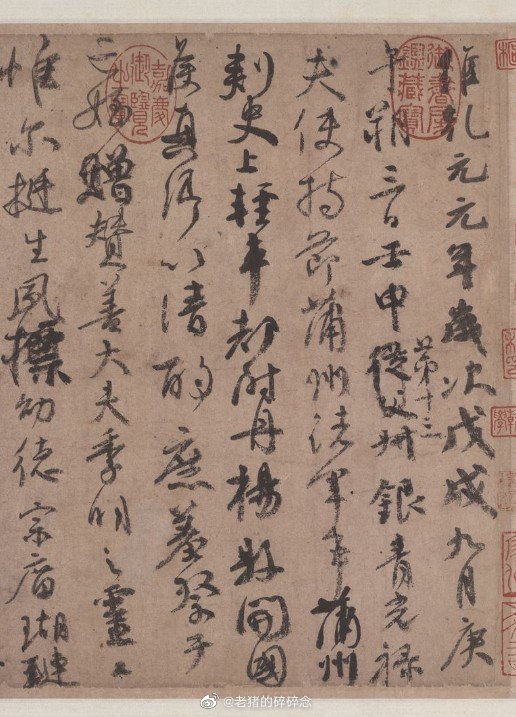 維乾元元年歲次戊戌九月庚
午朔三日壬申第十三叔銀青光祿
夫使持節蒲州諸軍事蒲州
刺史上輕車都尉丹楊縣開國
侯真卿以清酌庶羞祭于
亡姪贈贊善大夫季明之靈曰
惟爾挺生夙標幼德宗廟瑚璉
御書房鑑藏寶
嘉慶御覽之寶
@老猪的碎碎念